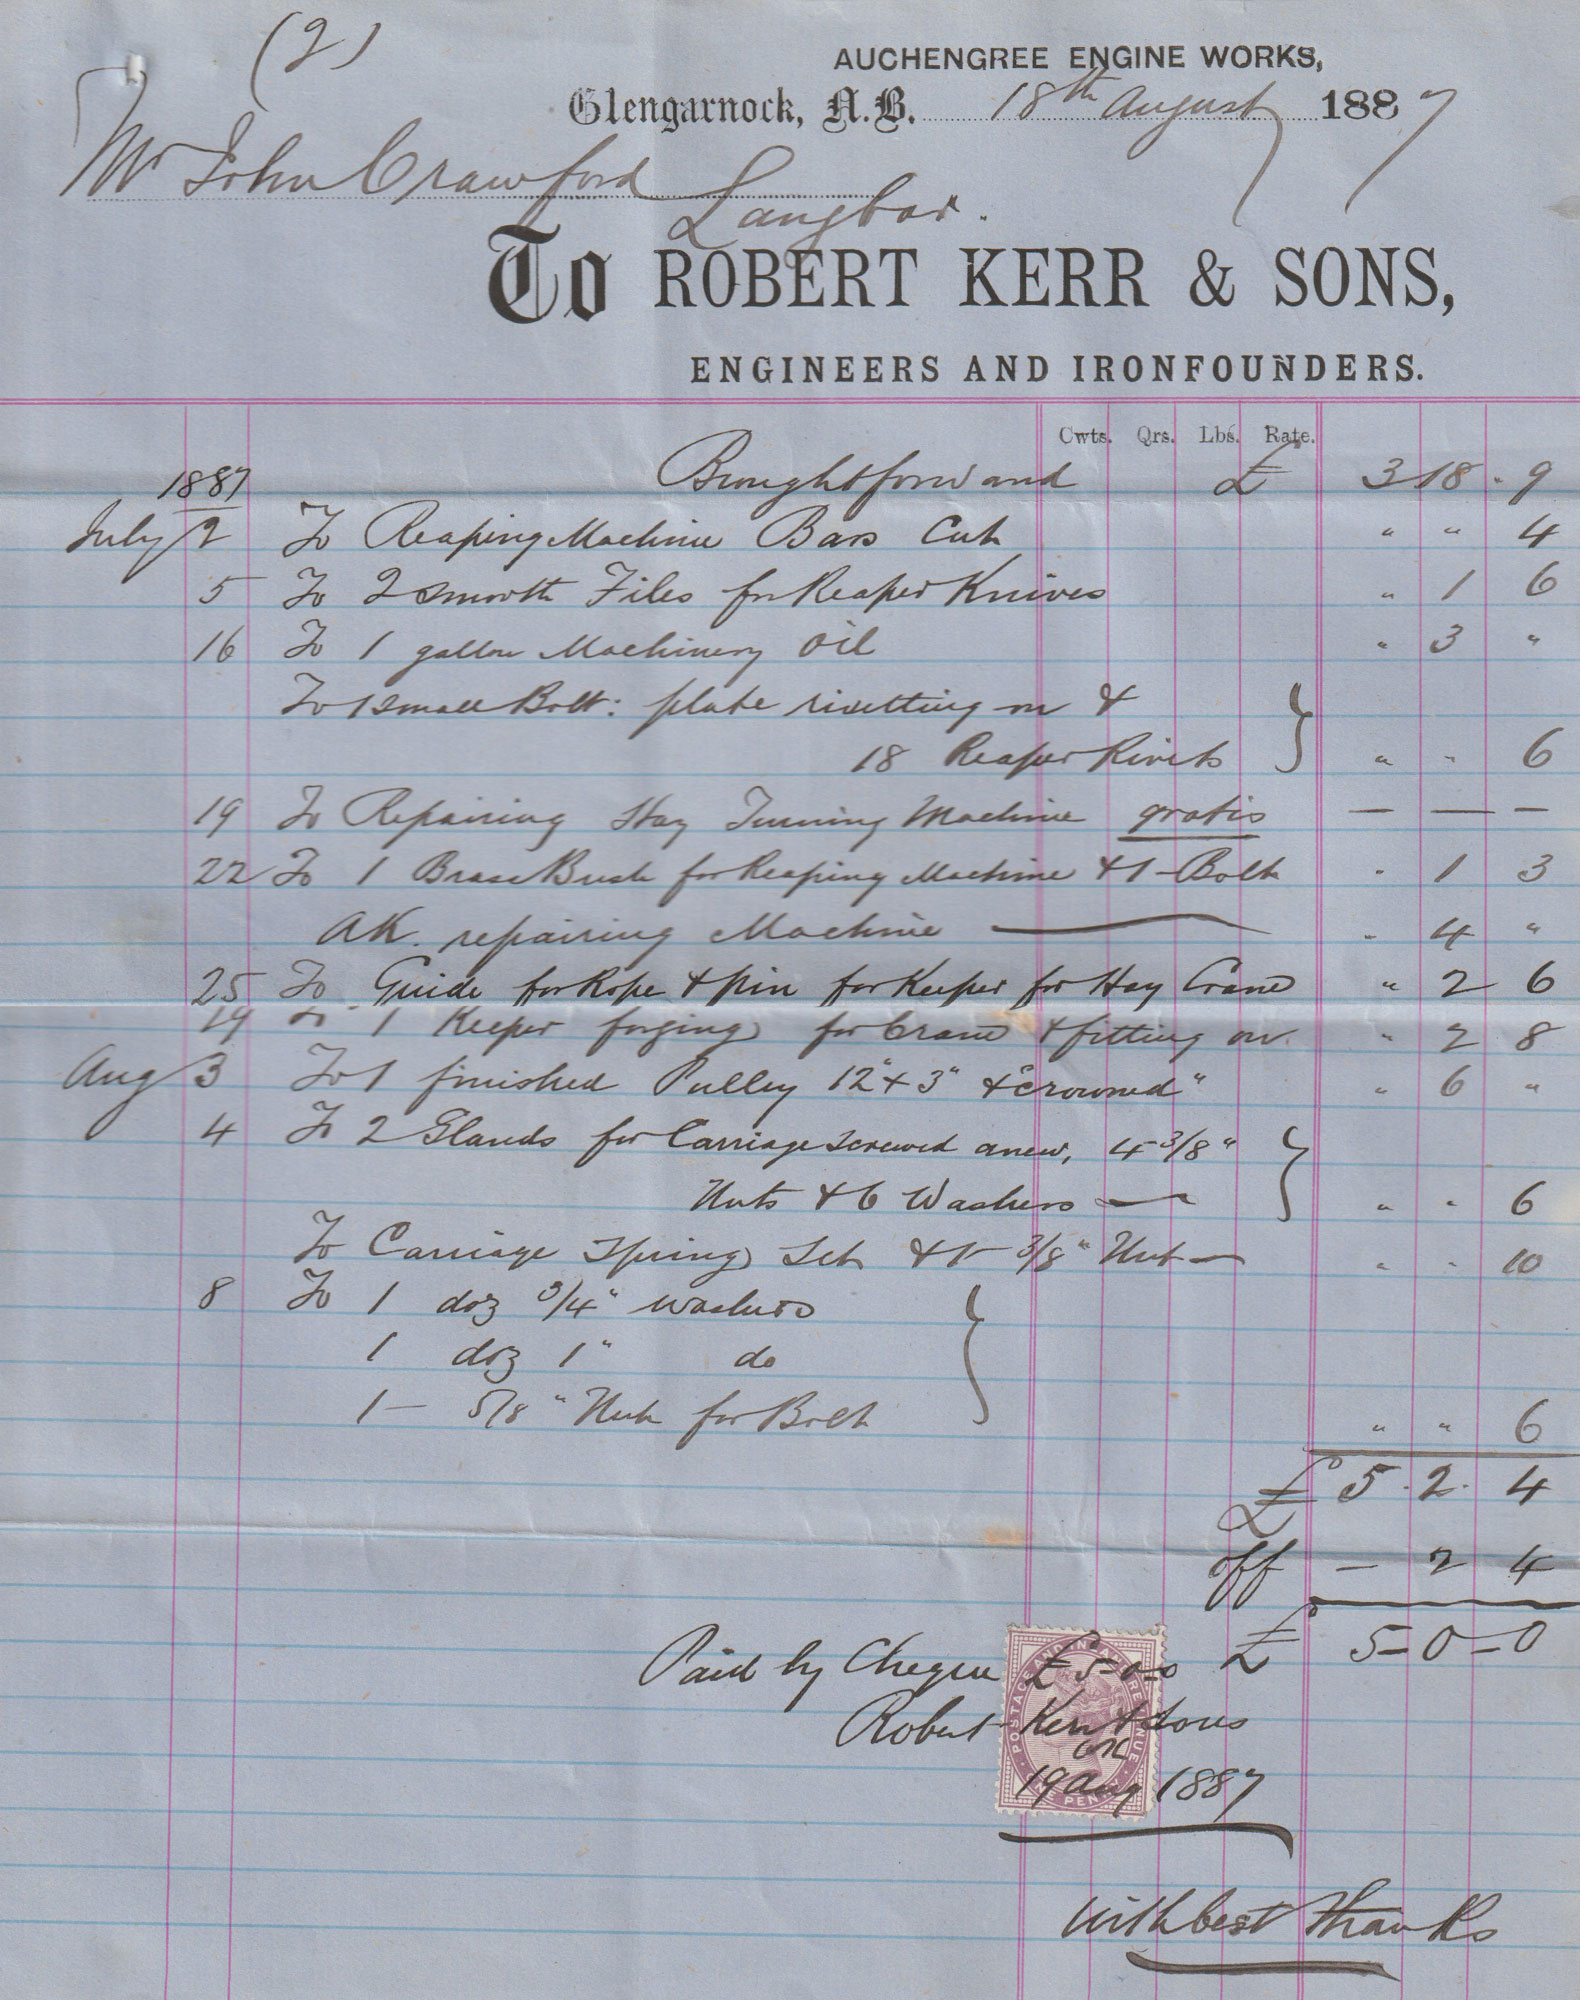 (2)
AUCHENGREE ENGINE WORKS,
Glengarnock, N.B. 18th August 1887
Mr John Crawford
Langbar.
To ROBERT KERR & SONS,
ENGINEERS AND IRONFOUNDERS.
Cwts. Qrs. Lbs. Rate.
1887 Brought forward £ 3 18 . 9
July 2 To Reaping Machine Bars Cut " " 4
5 To 2 Smooth Files for Reaper Knives " 1 6
16 To 1 gallon Machinery Oil " 3 "
To 1 small Bolt: plate rivetting on &
18 Reaper Rivets } " " 6
19 To Repairing Hay Turning Machine gratis — — —
22 To 1 Brass Bush for Reaping Machine & 1 Bolt " 1 3
AK. repairing Machine — " 4 "
25 To Guide for Rope & pin for Keeper for Hay Crane " 2 6
19 To 1 Keeper forging for Crane & fitting on. " 2 8
Aug 3 To 1 finished Pulley 12" + 3" & "crowned" " 6 "
4 To 2 Glands for Carriage Screwed anew, 4 3/8"
Nuts & 6 Washers — } " " 6
To Carriage Spring Set & 1 3/8" Nut — " " 10
8 To 1 doz 3/4" washers
1 doz 1" do
1 — 5/8" Nut for Bolt } " " 6
£ 5 . 2 . 4
off — 2 4
£ 5 - 0 - 0
Paid by Cheque £5-0-0
Robert Kerr & Sons
19 Aug 1887
POSTAGE AND INLAND REVENUE
ONE PENNY
With best thanks